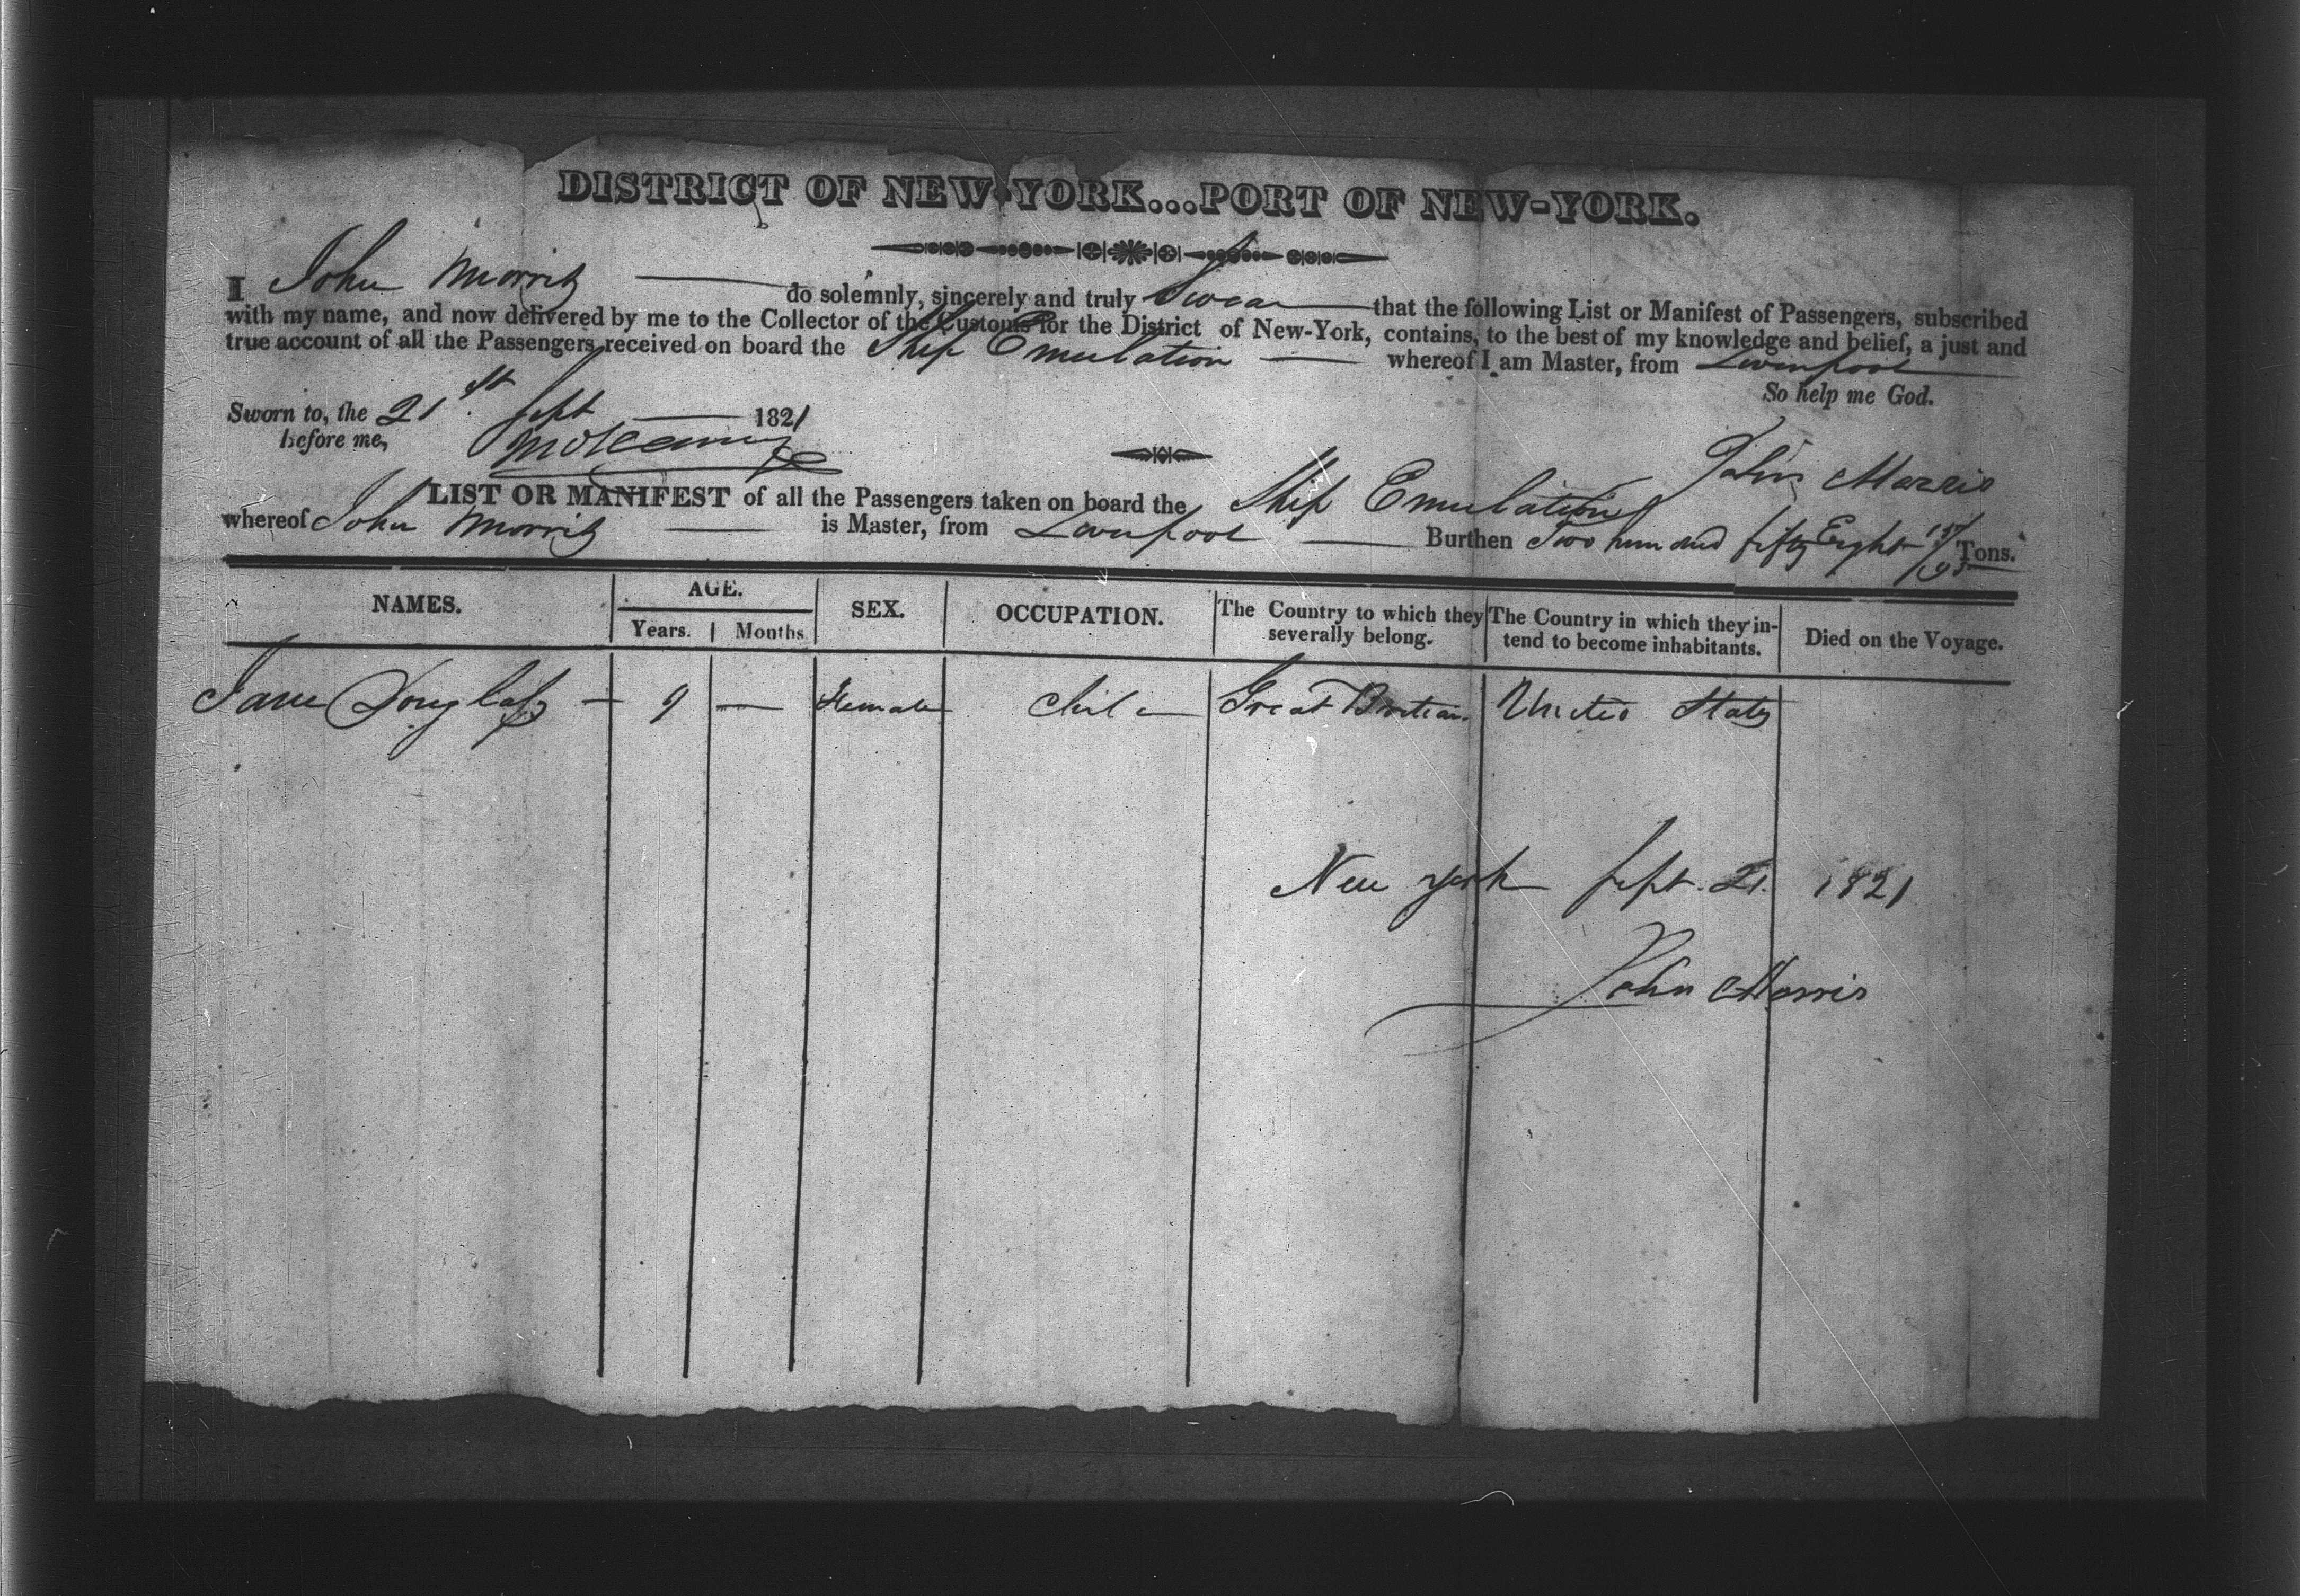 DISTRICT OF NEW-YORK...PORT OF NEW-YORK.
I John Morris do solemnly, sincerely and truly Swear that the following List or Manifest of Passengers, subscribed
with my name, and now delivered by me to the Collector of the Customs for the District of New-York, contains, to the best of my knowledge and belief, a just and
true account of all the Passengers received on board the Ship Emulation whereof I am Master, from Liverpool
So help me God.
Sworn to, the 21st Sept 1821
before me,
John Morris
LIST OR MANIFEST of all the Passengers taken on board the Ship Emulation
whereof John Morris is Master, from Liverpool Burthen Two hundred fifty Eight Tons.
NAMES. AGE. SEX. OCCUPATION. The Country to which they severally belong. The Country in which they intend to become inhabitants. Died on the Voyage.
Years. Months
Jane Douglass — 9 — Female Child Great Britian. United States
New York Sept. 21. 1821
John Morris